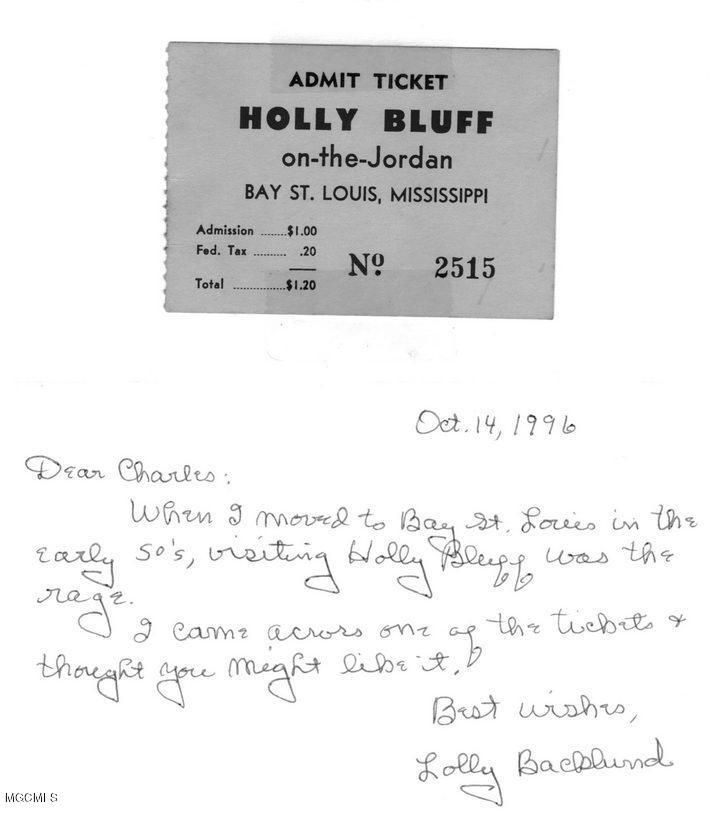 ADMIT TICKET
HOLLY BLUFF
on-the-Jordan
BAY ST. LOUIS, MISSISSIPPI
Admission .......$1.00
Fed. Tax .......... .20
Total ................$1.20
Nº 2515
Oct. 14, 1996
Dear Charles:
When I moved to Bay St. Louis in the
early 50's, visiting Holly Bluff was the
rage.
I came across one of the tickets &
thought you might like it.
Best wishes,
Lolly Backlund
MGCMLS